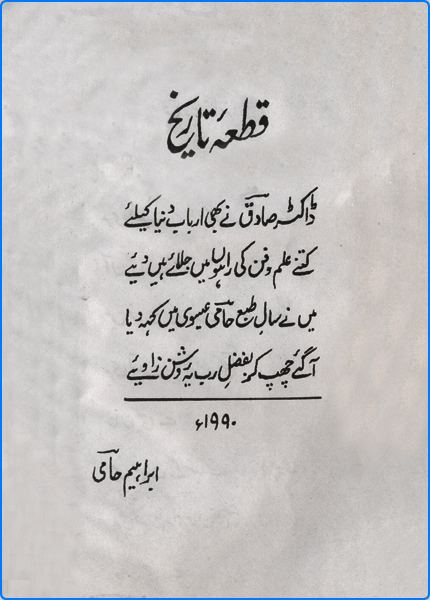 قطعۂ تاریخ
ڈاکٹر صادقؔ نے بھی اربابِ دنیا کیلئے
کتنے علم و فن کی راہوں میں جلائے ہیں دیئے
میں نے سالِ طبع حامیؔ عیسوی میں کہہ دیا
آگئے چھپ کر بفضلِ رب یہ روشن زاویئے
۱۹۹۰ء
ابراہیم حامیؔ